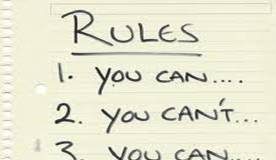 RULES
1. YOU CAN....
2. YOU CAN'T...
3. YOU CAN....